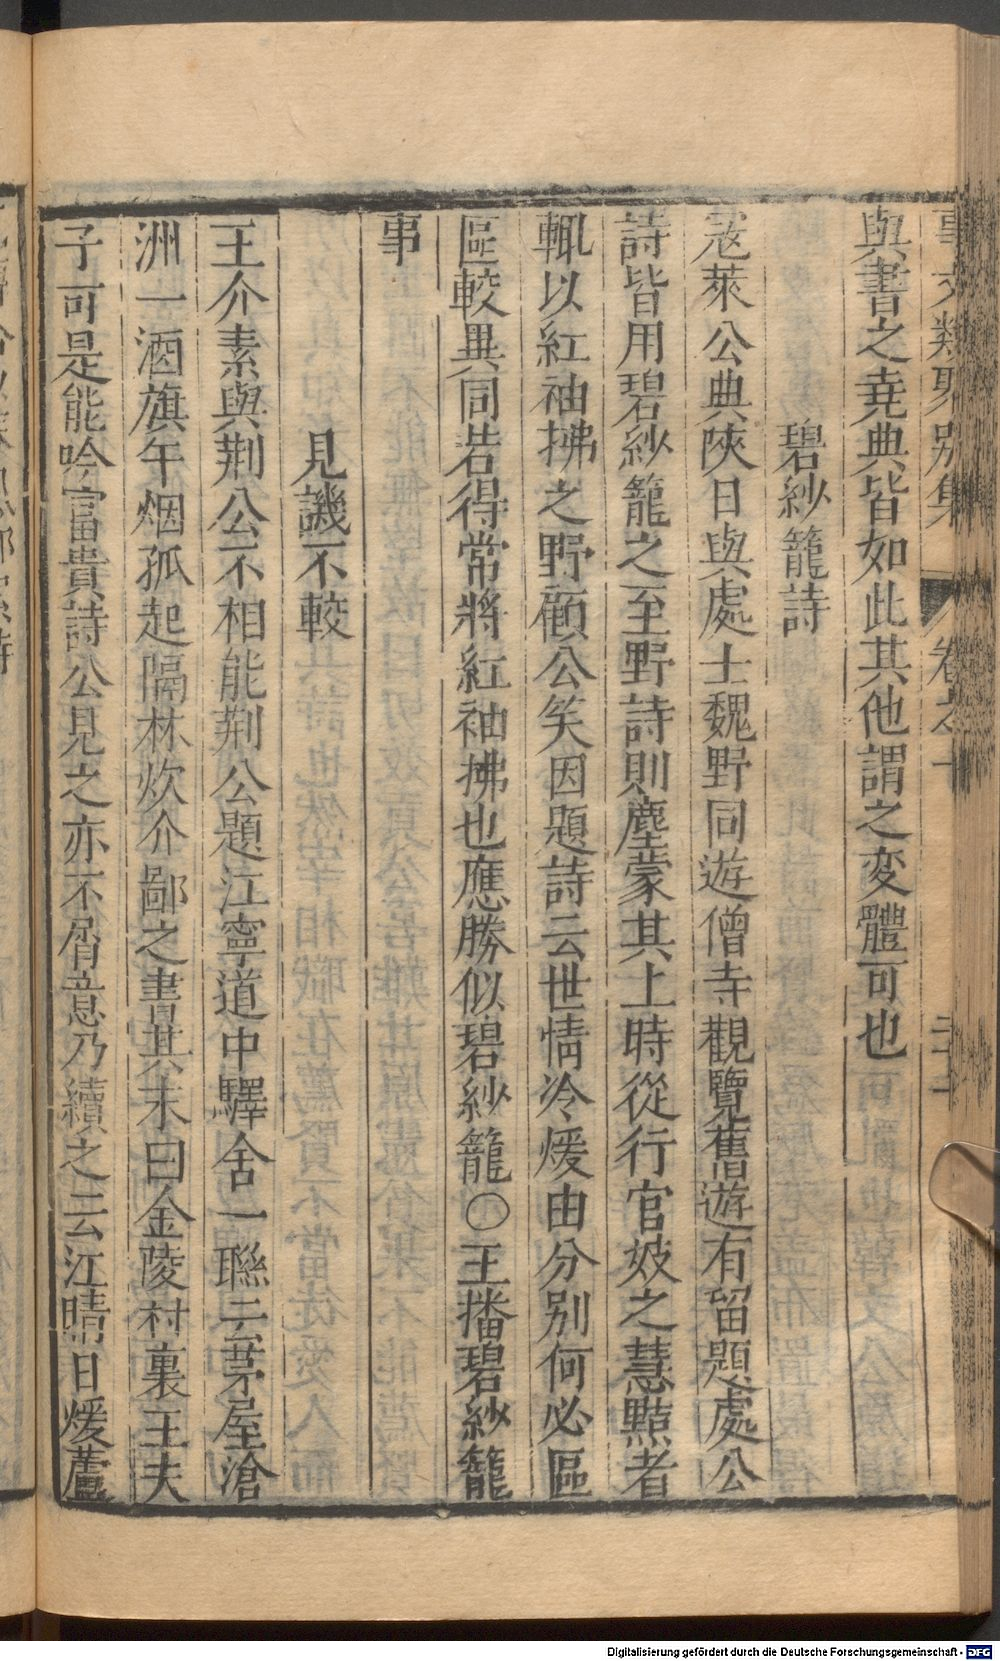 事文類聚別集 卷之十
與書之尭典皆如此其他謂之変體可也
碧紗籠詩
冦萊公典陜日與處士魏野同遊僧寺觀覽舊遊有留題處公
詩皆用碧紗籠之至野詩則塵蒙其上時從行官妓之慧黠者
輒以紅袖拂之野顧公笑因題詩云世情冷煖由分别何必區
區較異同若得常將紅袖拂也應勝似碧紗籠○王播碧紗籠
事
見譏不較
王介素與荆公不相能荆公題江寧道中驛舍一聯云茅屋滄
洲一酒旗午烟孤起隔林炊介鄙之書其末曰金陵村裏王夫
子可是能吟富貴詩公見之亦不屑意乃續之云江晴日煖蘆
Digitalisierung gefördert durch die Deutsche Forschungsgemeinschaft - DFG